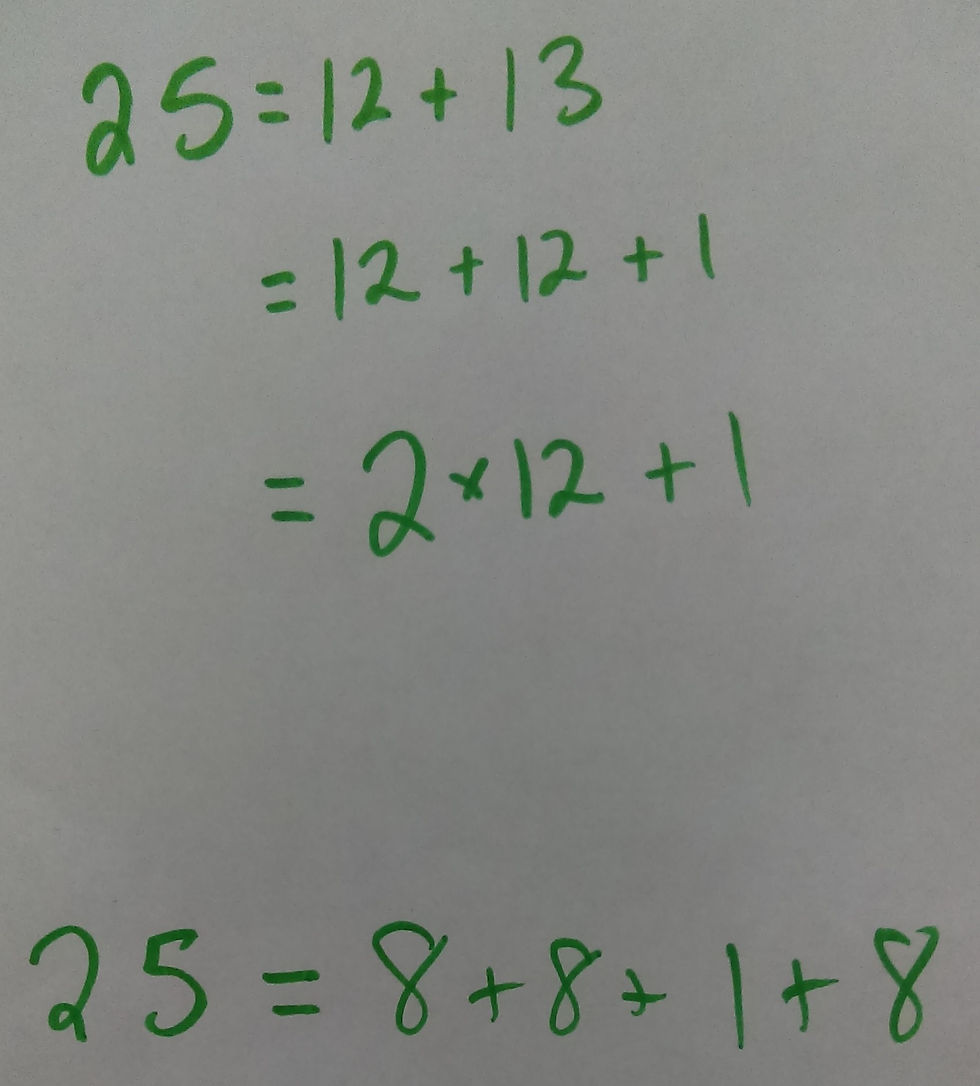 25=12+13
=12+12+1
=2×12+1
25=8+8+1+8